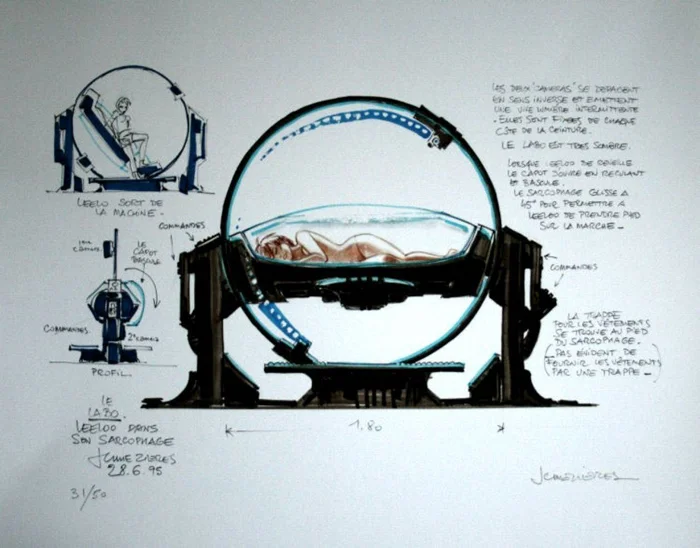 LES DEUX "CAMERAS" SE DEPLACENT
EN SENS INVERSE ET EMETTENT
UNE LUMIERE INTERMITTENTE
. ELLES SONT FIXEES DE CHAQUE
COTE DE LA CEINTURE.
LE LABO EST TRES SOMBRE.
LORSQUE LEELOO SE REVEILLE
LE CAPOT S'OUVRE EN RECULANT
ET BASCULE.
LE SARCOPHAGE GLISSE A
45° POUR PERMETTRE A
LEELOO DE PRENDRE PIED
SUR LA MARCHE -
LEELOO SORT DE
LA MACHINE.
COMMANDES
LE
CAPOT
BASCULE
COMMANDES
2e CAMERA
PROFIL.
COMMANDES
LA TRAPPE
POUR LES VÊTEMENTS
SE TROUVE AU PIED
DU SARCOPHAGE.
(PAS EVIDENT DE
FOURNIR LES VÊTEMENTS
PAR UNE TRAPPE -)
1.80
LE
LABO.
LEELOO DANS
SON SARCOPHAGE
JCMEZIERES
28.6.95
31/50
JCMEZIÈRES